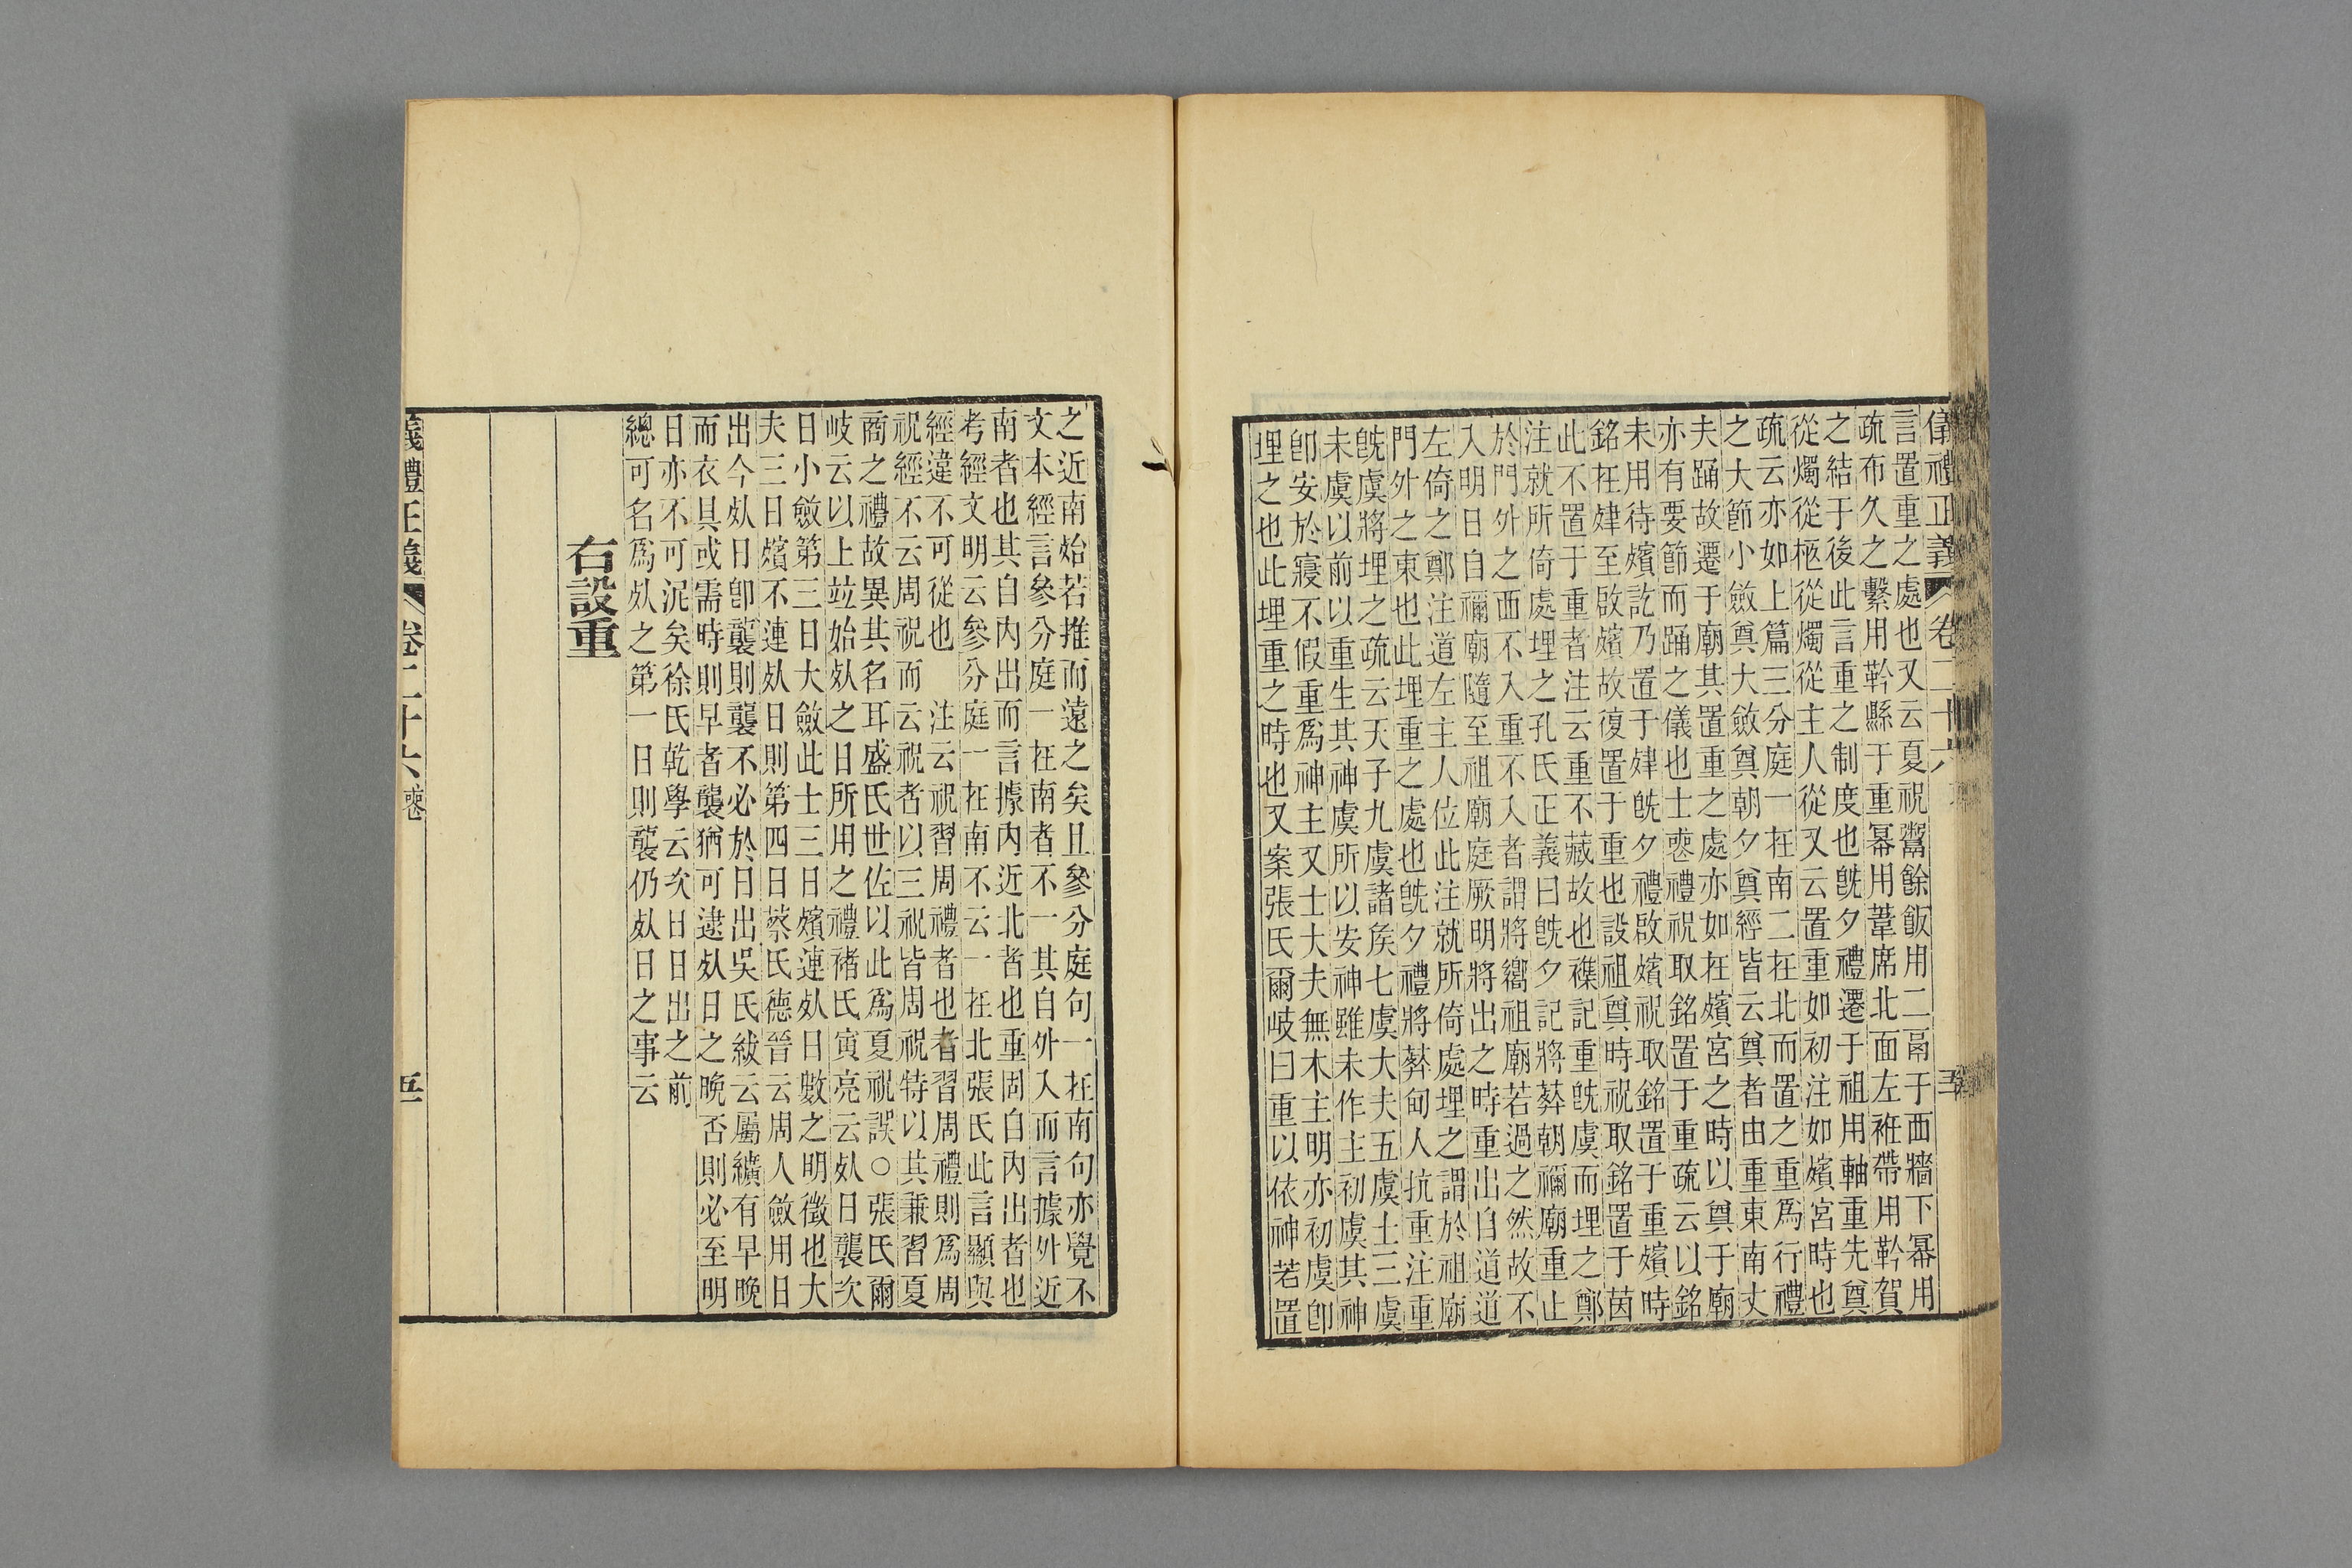 儀禮正義　卷二十六
言置重之處也又云夏祝鬻餘飯用二鬲于西牆下冪用
疏布久之繫用靲縣于重冪用葦席北面左衽帶用靲賀
之結于後此言重之制度也旣夕禮遷于祖用軸重先奠
從燭從柩從燭從主人從又云置重如初注如殯宮時也
疏云亦如上篇三分庭一在南二在北而置之重爲行禮
之大節小斂奠大斂奠朝夕奠經皆云奠者由重東南丈
夫踊故遷于廟其置重之處亦如在殯宮之時以奠于廟
亦有要節而踊之儀也士喪禮祝取銘置于重疏云以銘
未用待殯訖乃置于肂旣夕禮啟殯祝取銘置于重殯時
銘在肂至啟殯故復置于重也設祖奠時祝取銘置于茵
此不置于重者注云重不藏故也襍記重旣虞而埋之鄭
注就所倚處埋之孔氏正義曰旣夕記將葬朝禰廟重止
於門外之西不入重不入者謂將嚮祖廟若過之然故不
入明日自禰廟隨至祖廟庭厥明將出之時重出自道道
左倚之鄭注道左主人位此注就所倚處埋之謂於祖廟
門外之東也此埋重之處也旣夕禮將葬甸人抗重注重
旣虞將埋之疏云天子九虞諸矦七虞大夫五虞士三虞
未虞以前以重生其神虞所以安神雖未作主初虞其神
卽安於寢不假重爲神主又士大夫無木主明亦初虞卽
埋之也此埋重之時也又案張氏爾岐曰重以依神若置
之近南始若推而遠之矣且參分庭句一在南句亦覺不
文本經言參分庭一在南者不一其自外入而言據外近
南者也其自內出而言據內近北者也重固自內出者也
考經文明云參分庭一在南不云一在北張氏此言顯與
經違不可從也　注云祝習周禮者也者習周禮則爲周
祝經不云周祝而云祝者以三祝皆周祝特以其兼習夏
商之禮故異其名耳盛氏世佐以此爲夏祝誤○張氏爾
岐云以上竝始死之日所用之禮褚氏寅亮云死日襲次
日小斂第三日大斂此士三日殯連死日數之明徵也大
夫三日殯不連死日則第四日蔡氏德晉云周人斂用日
出今死日卽襲則襲不必於日出吳氏紱云屬纊有早晚
而衣具或需時則早者襲猶可逮死日之晚否則必至明
日亦不可泥矣徐氏乾學云次日日出之前
總可名爲死之第一日則襲仍死日之事云
右設重
儀禮正義　卷二十六　喪